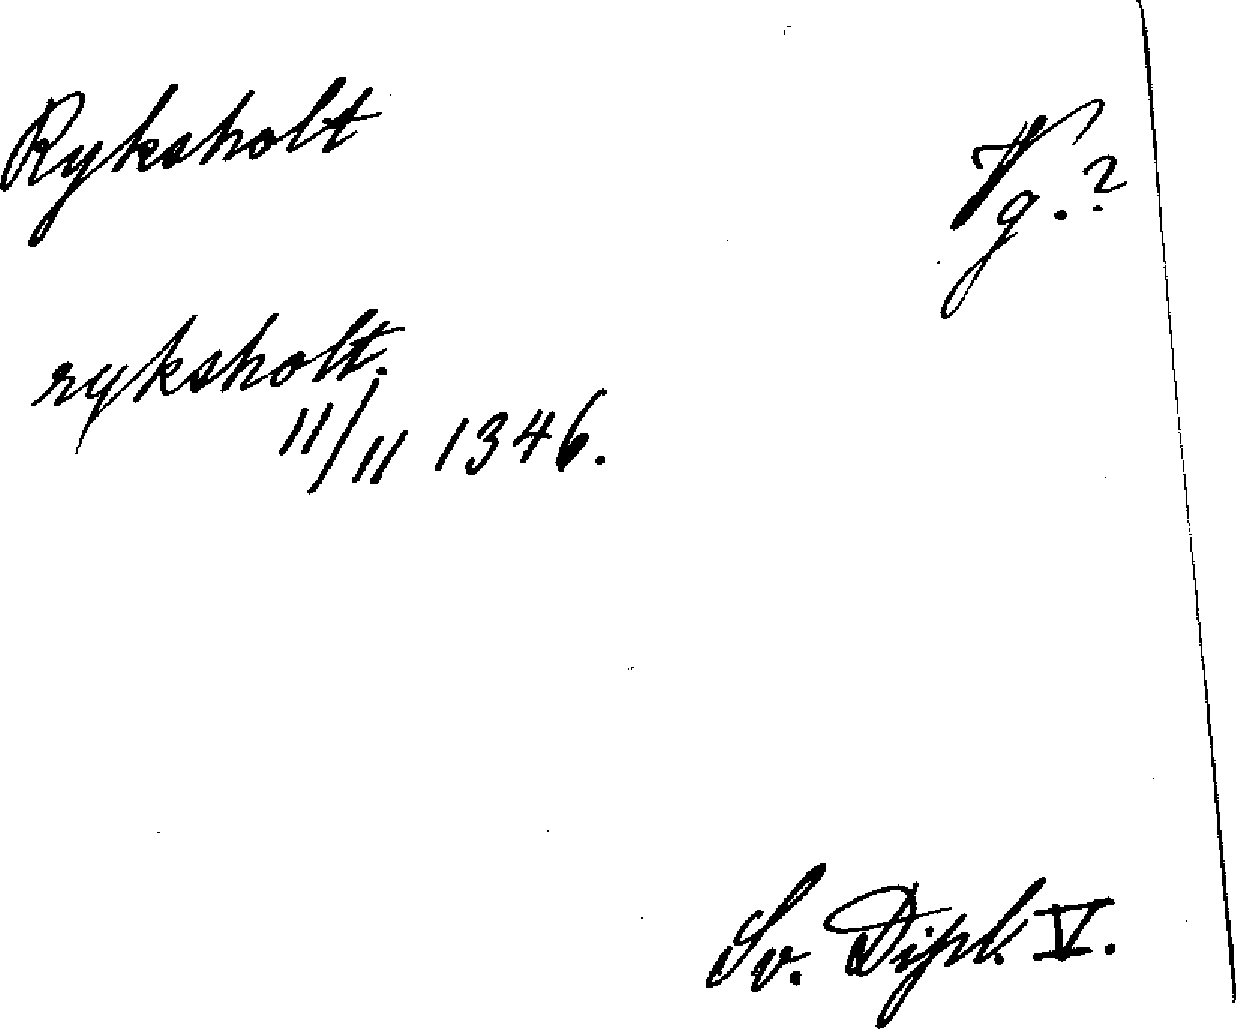 Ryksholt
Vg.?
ryksholt.
11/11 1346.
Sv. Dipl. V.